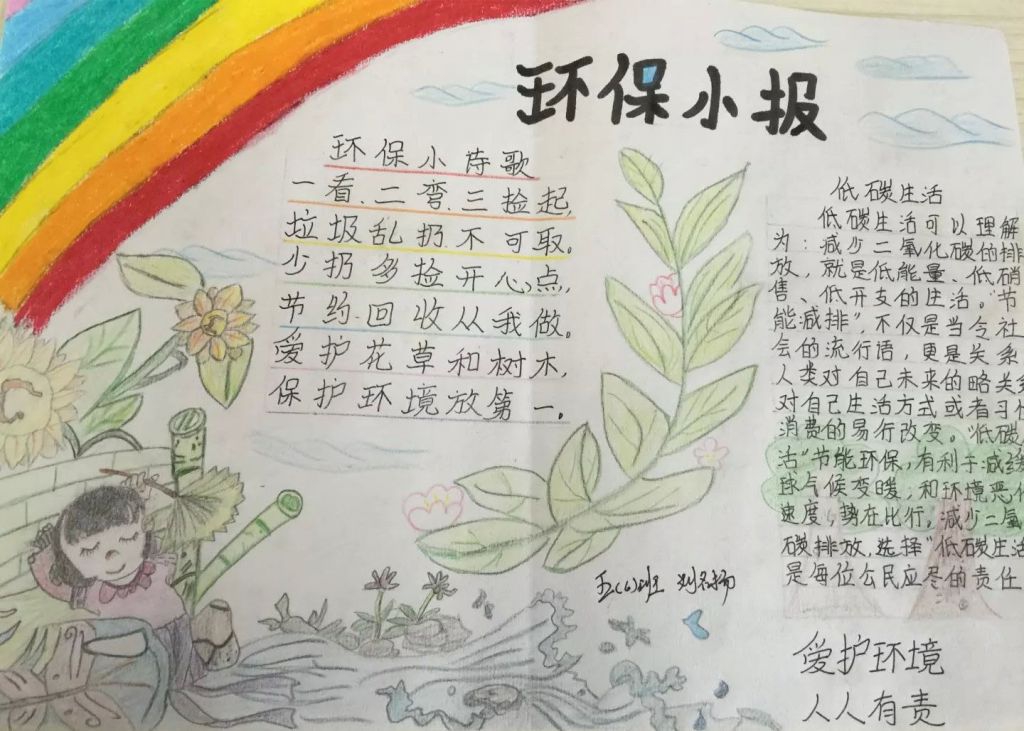 环保小报
环保小诗歌
一看、二弯、三捡起,
垃圾乱扔不可取。
少扔多捡开心点,
节约回收从我做。
爱护花草和树木,
保护环境放第一。
低碳生活
低碳生活可以理解
为:减少二氧化碳的排
放,就是低能量、低消
售、低开支的生活。“节
能减排”,不仅是当今社
会的流行语,更是关系
人类对自己未来的略关系
对自己生活方式或者习惯
消费的易行改变。“低碳
活”节能环保,有利于减缓
球气候变暖,和环境恶化
速度,势在比行。减少二氧
碳排放,选择“低碳生活
是每位公民应尽的责任
五(6)班
爱护环境
人人有责